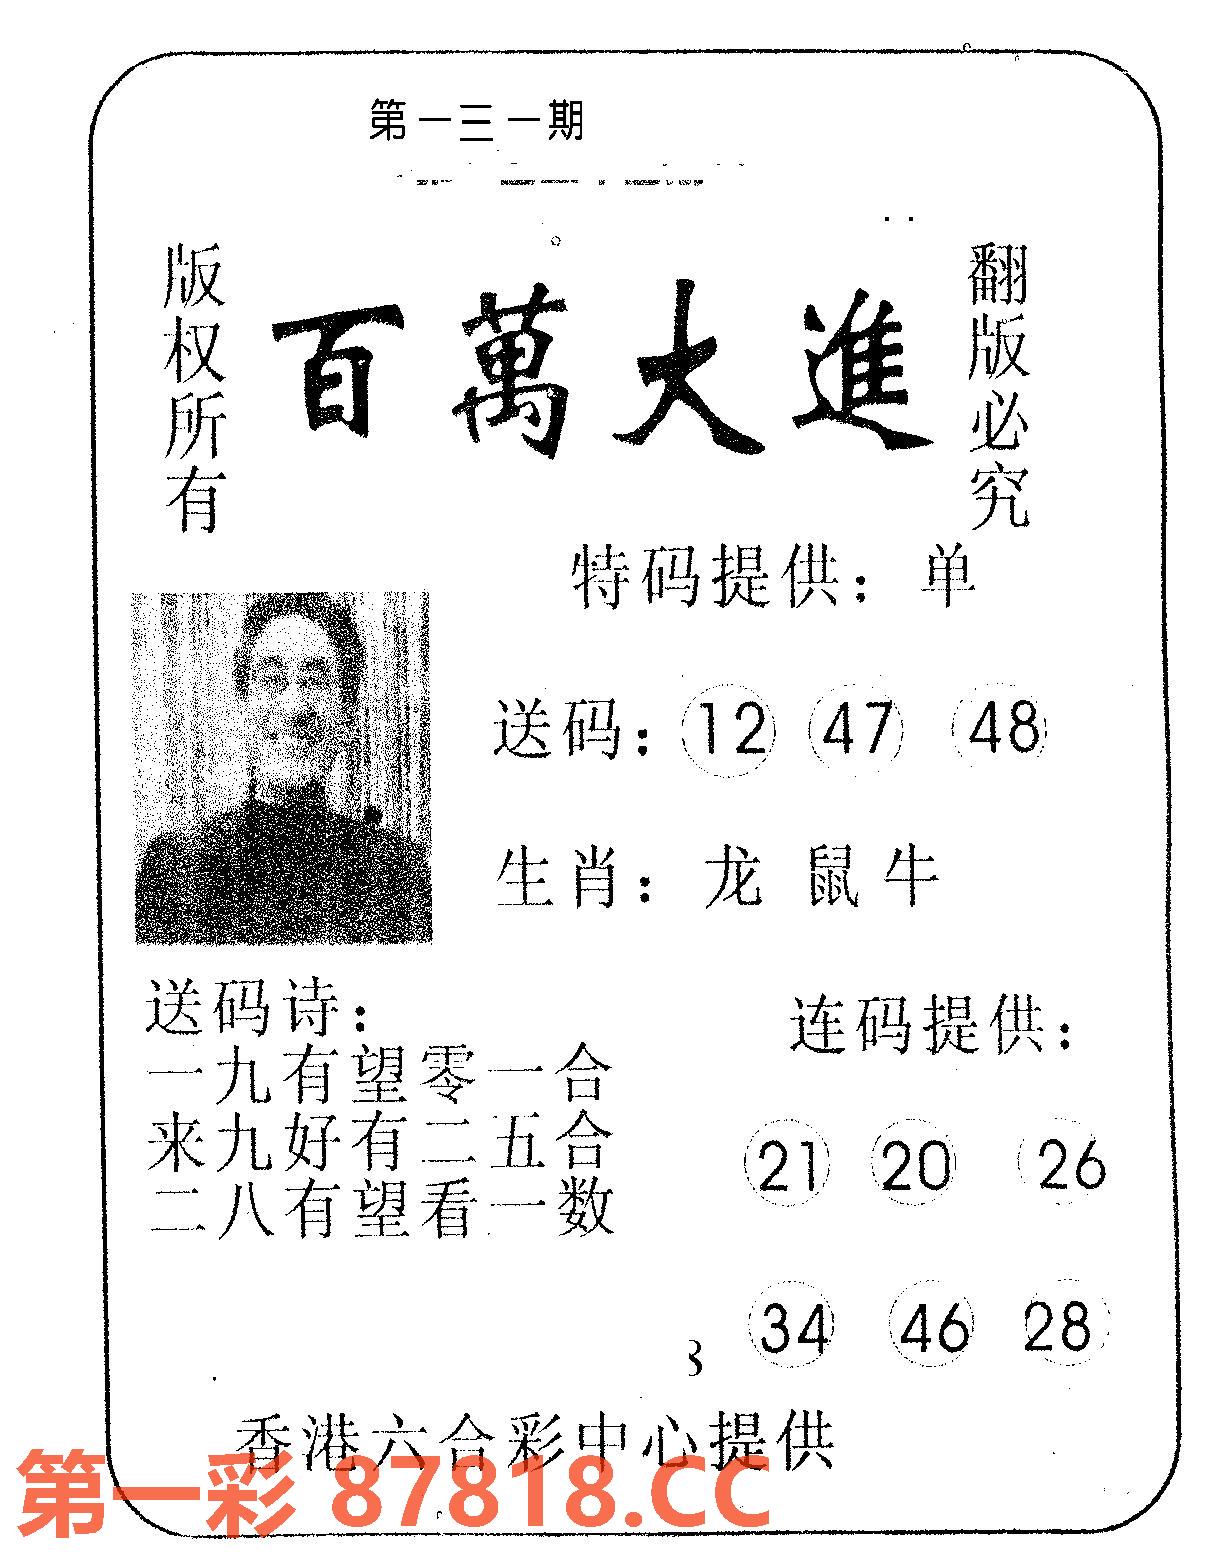 第一三一期
版权所有
百萬大進
翻版必究
特码提供：单
送码：12 47 48
生肖：龙 鼠 牛
送码诗：
一九有望零一合
来九好有二五合
二八有望看一数
连码提供：
21 20 26
34 46 28
香港六合彩中心提供
第一彩 87818.CC